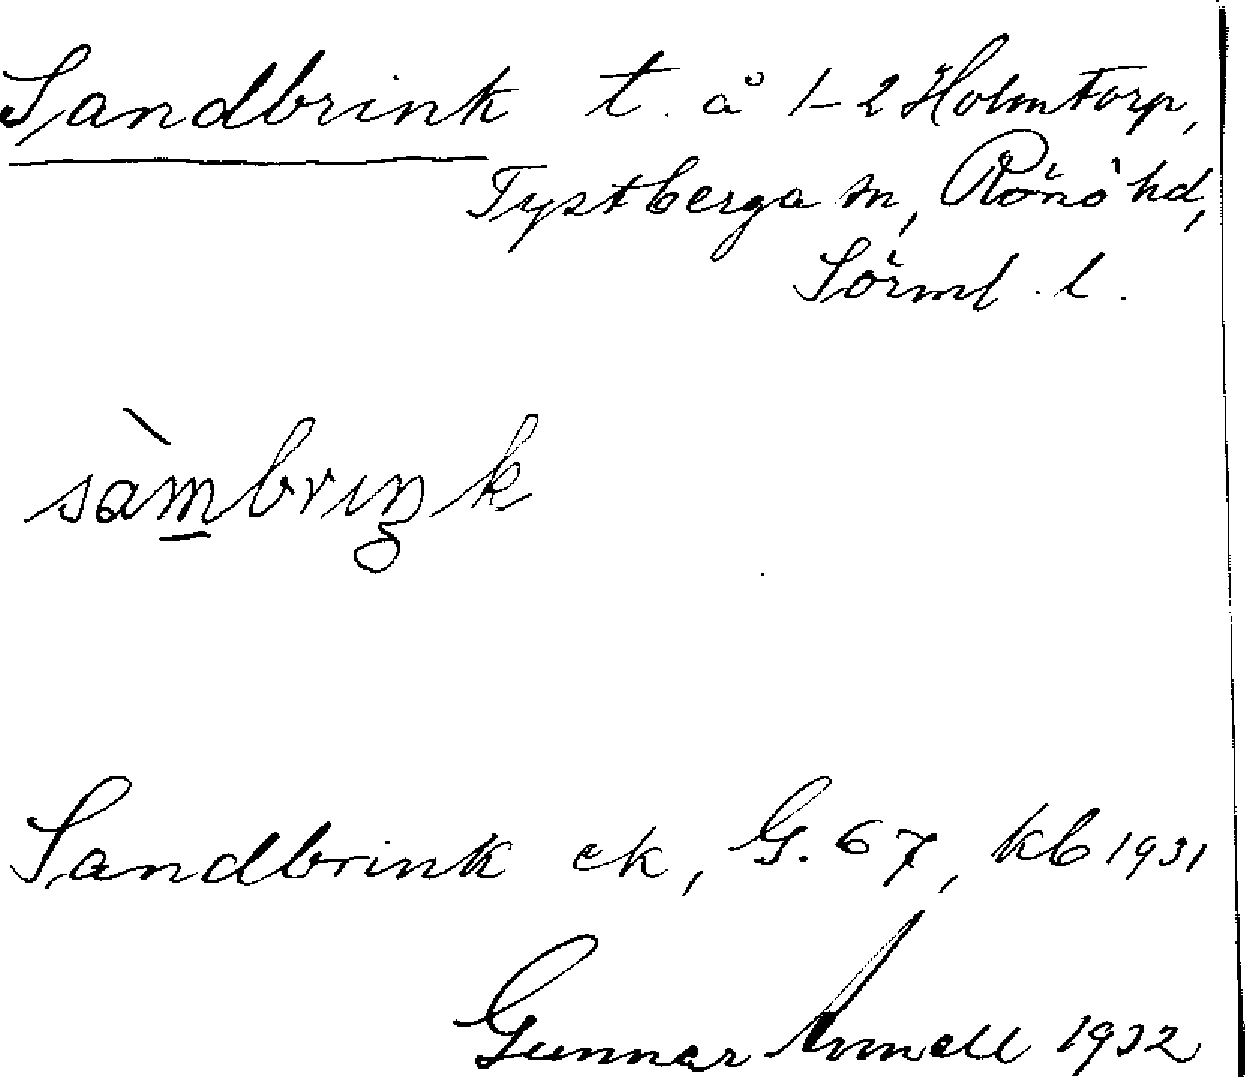 Sandbrink t. å 1-2 Holmtorp,
Tystberga sn, Rönö hd,
Sörml. l.
sàm̲briŋk
Sandbrink ek, G. 67, kb 1931
Gunnar Annell 1932